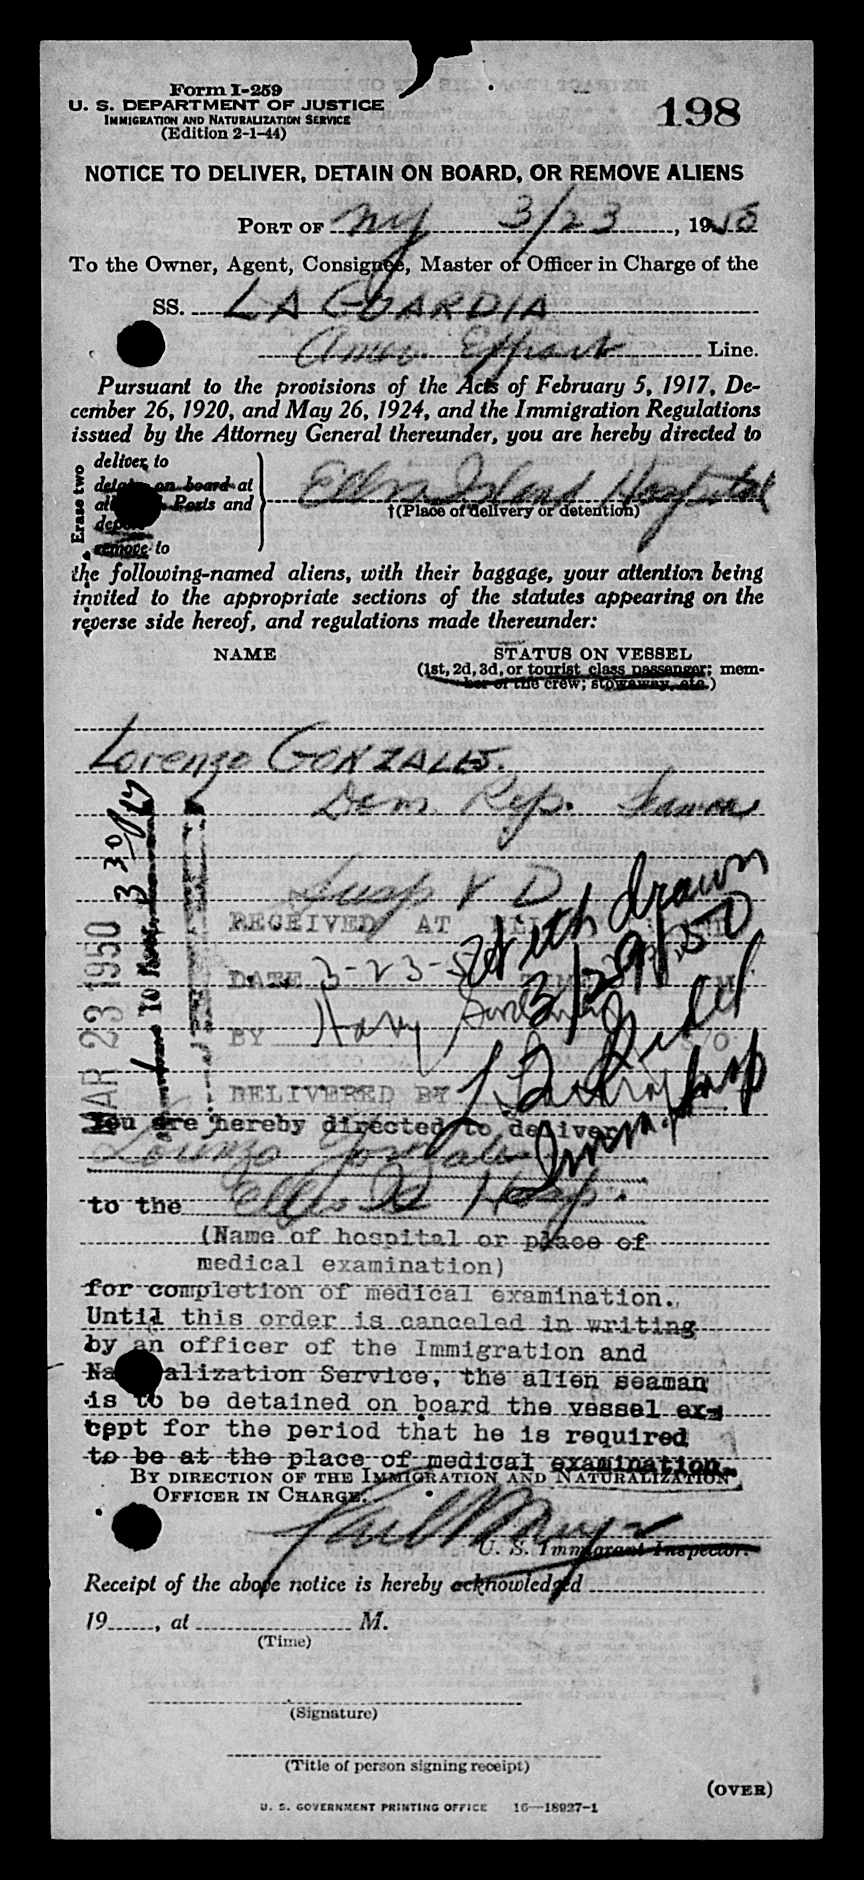 Form I-259
U. S. DEPARTMENT OF JUSTICE
IMMIGRATION AND NATURALIZATION SERVICE
(Edition 2-1-44)
198
NOTICE TO DELIVER, DETAIN ON BOARD, OR REMOVE ALIENS
PORT OF NY 3/23, 19
To the Owner, Agent, Consignee, Master or Officer in Charge of the
SS. LA GUARDIA
Amer. Export Line.
Pursuant to the provisions of the Acts of February 5, 1917, De-
cember 26, 1920, and May 26, 1924, and the Immigration Regulations
issued by the Attorney General thereunder, you are hereby directed to
Erase two
deliver to
detain on board at
Ports and
remove to
Island Hospital
†(Place of delivery or detention)
the following-named aliens, with their baggage, your attention being
invited to the appropriate sections of the statutes appearing on the
reverse side hereof, and regulations made thereunder:
NAME
STATUS ON VESSEL
(1st, 2d, 3d, or tourist class passenger; mem-
ber of the crew; stowaway, etc.)
Lorenzo GONZALES.
Dom. Rep. Seaman
Susp V D
Withdrawn
3/29/50
RECEIVED AT
DATE 3-23-5 TIME M.
BY Harry
DELIVERED BY
Imm. Insp
MAR 23 1950
3 30
You are hereby directed to deliver
Lorenzo Gonzales
to the Ellis Is Hosp.
(Name of hospital or place of
medical examination)
for completion of medical examination.
Until this order is canceled in writing
by an officer of the Immigration and
Naturalization Service, the alien seaman
is to be detained on board the vessel ex-
cept for the period that he is required
to be at the place of medical examination.
BY DIRECTION OF THE IMMIGRATION AND NATURALIZATION
OFFICER IN CHARGE.
U. S. Immigrant Inspector.
Receipt of the above notice is hereby acknowledged
19, at M.
(Time)
(Signature)
(Title of person signing receipt)
(OVER)
U. S. GOVERNMENT PRINTING OFFICE 16—18927-1